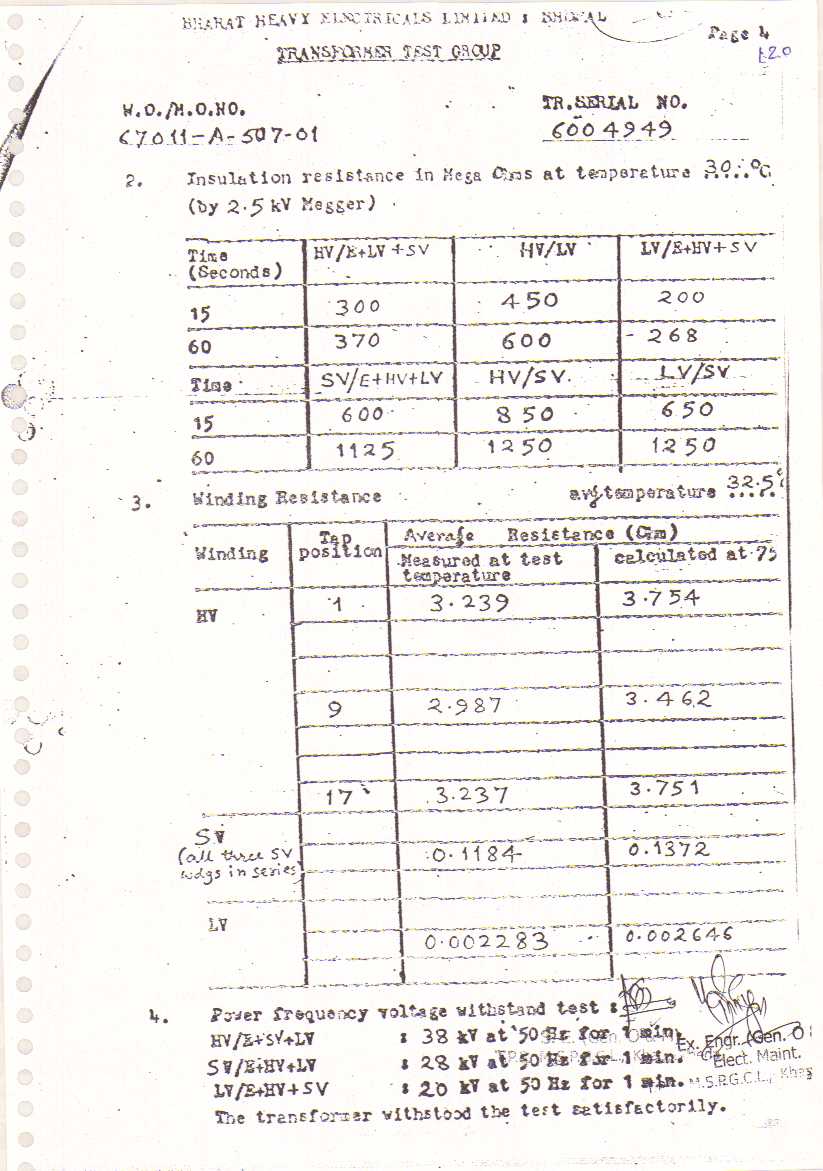 BHARAT HEAVY ELECTRICALS LIMITED : BHOPAL
Page 4
120
TRANSFORMER TEST GROUP
W.O./M.O.NO. TR.SERIAL NO.
67011-A-507-01 6004949
2. Insulation resistance in Mega Ohms at temperature 30.°C
(by 2.5 kV Megger)
Time (Seconds) HV/E+LV+SV HV/LV LV/E+HV+SV
15 300 450 200
60 370 600 268
Time SV/E+HV+LV HV/SV. LV/SV
15 600 850 650
60 1125 1250 1250
3. Winding Resistance avg temperature 32.5°
Winding Tap position Average Resistance (Ohm)
Measured at test temperature calculated at 75
HV 1 3.239 3.754
9 2.987 3.462
17 3.237 3.751
SV
(all three SV wdgs in series) 0.1184 0.1372
LV
0.002283 0.002646
4. Power frequency voltage withstand test :
HV/E+SV+LV : 38 kV at 50 Hz for 1 min.
SV/E+HV+LV : 28 kV at 50 Hz for 1 min.
LV/E+HV+SV : 20 kV at 50 Hz for 1 min.
The transformer withstood the test satisfactorily.
Ex. Engr. (Gen. O
Elect. Maint.
M.S.P.G.C.L., Khap